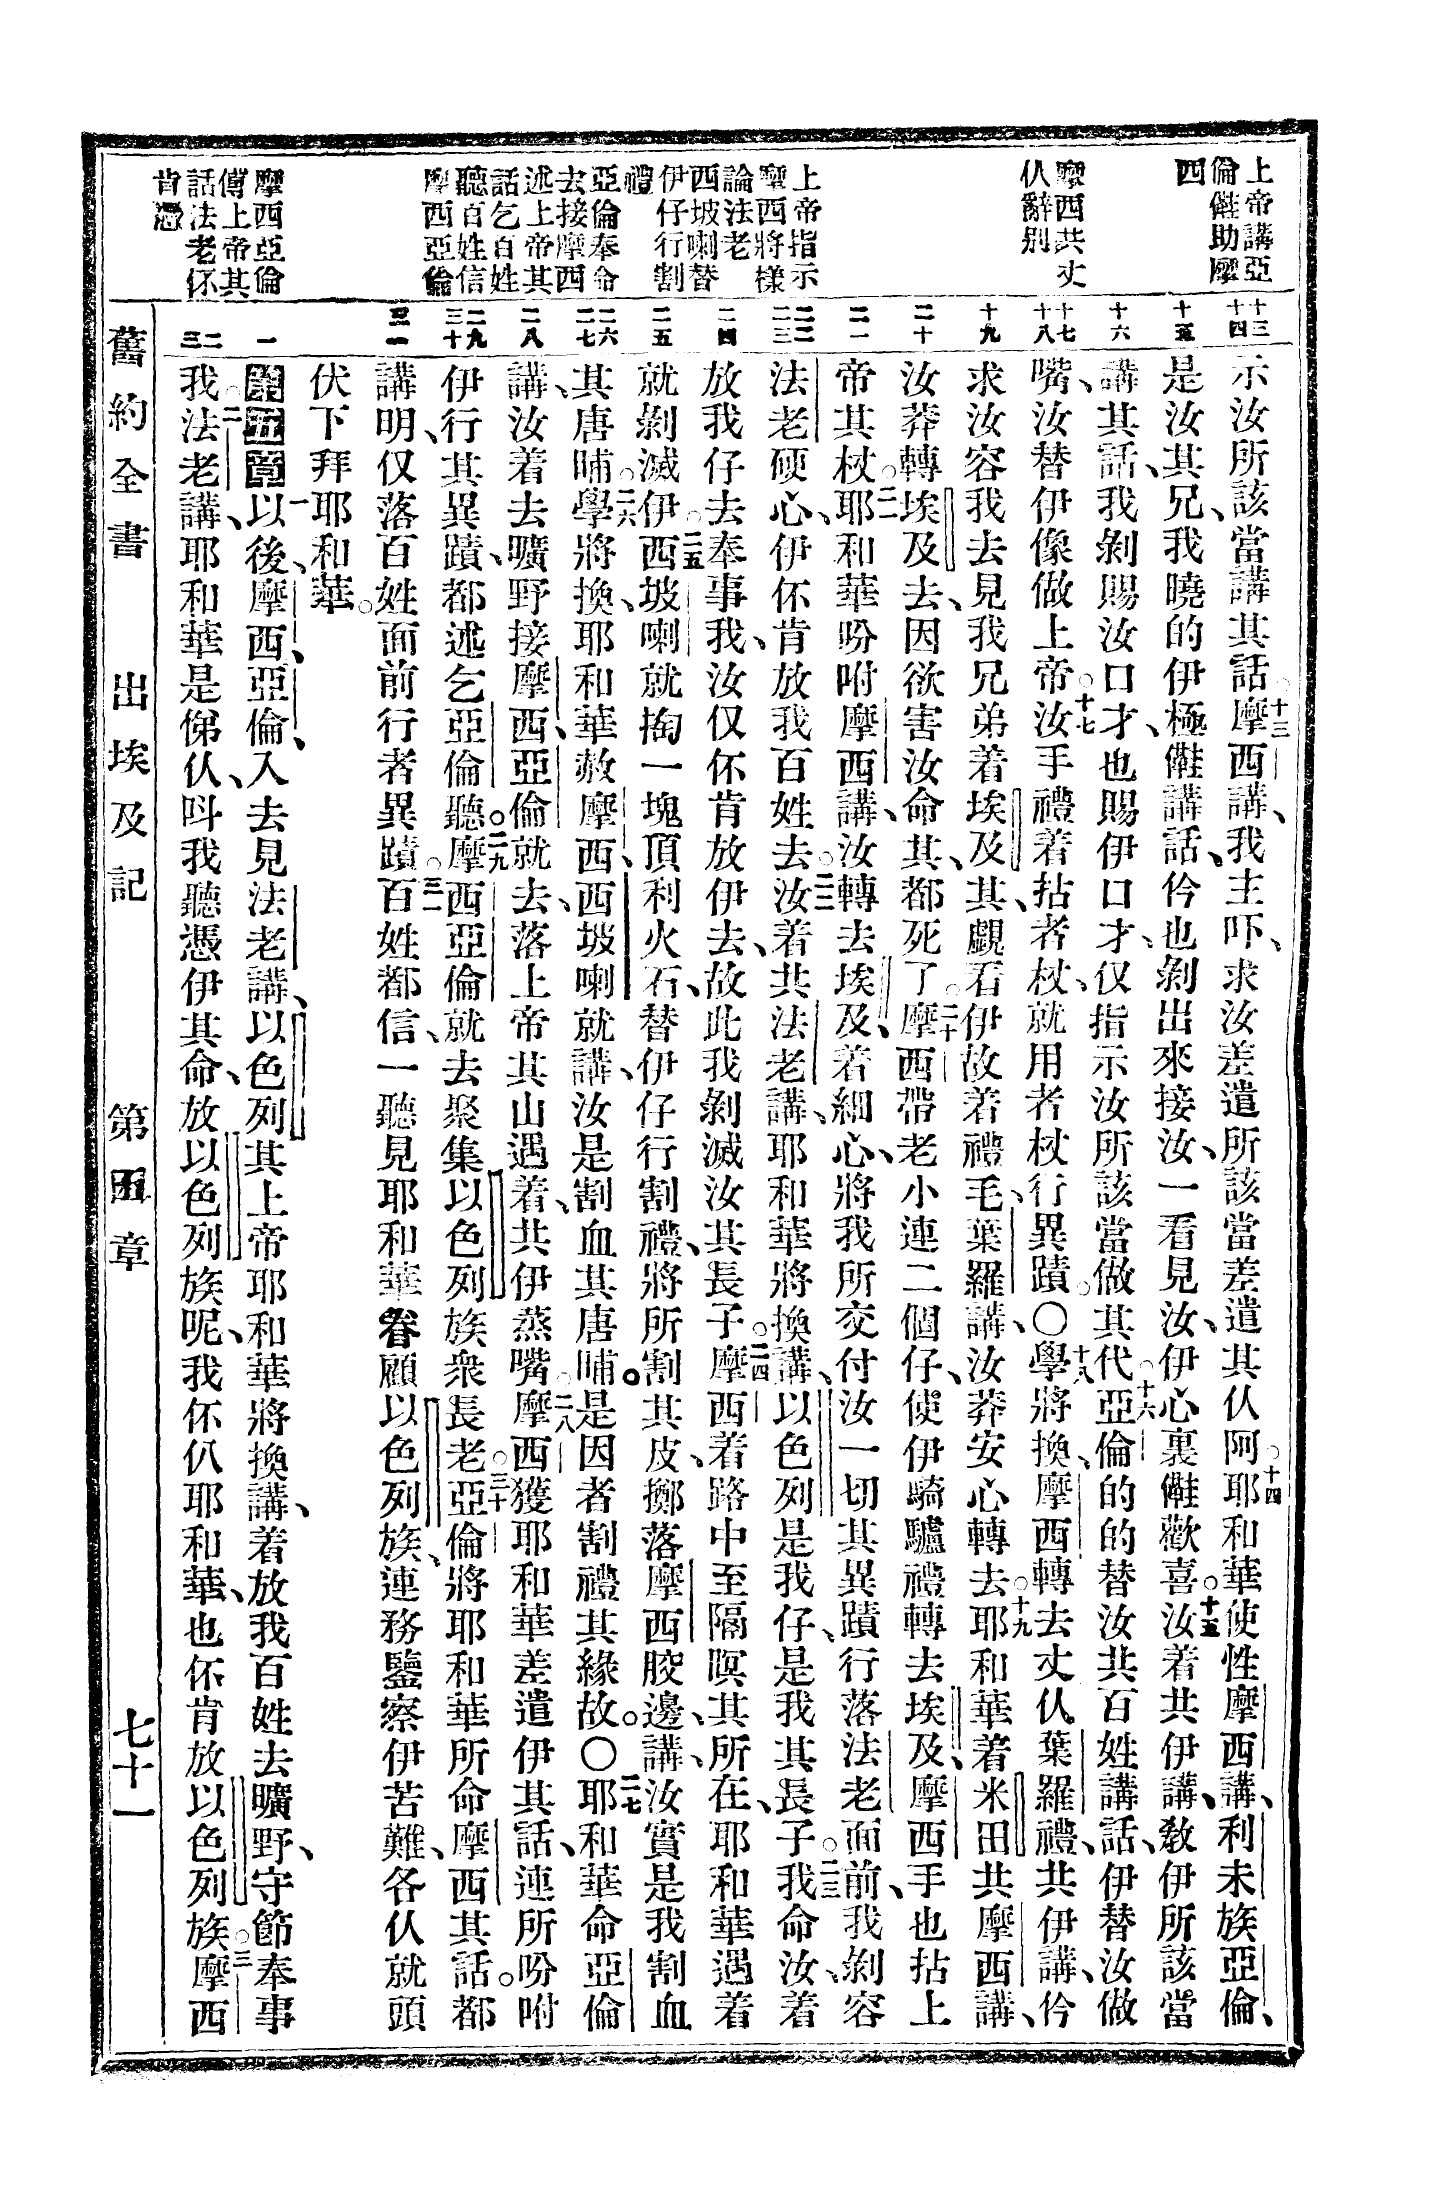 上帝講亞
倫𠆧助摩
西
摩西共丈
仈辭别
上帝指示
摩西將樣
論法老
西坡喇替
伊仔行割
禮
亞倫奉命
去接摩西
述上帝其
話乞百姓
聽百姓信
摩西亞倫
摩西亞倫
傳上帝其
話法老伓
肯憑
十三
十四
十五
十六
十七
十八
十九
二十
二一
二二
二三
二四
二五
二六
二七
二八
二九
三十
三一
一
二
三
示汝所該當講其話。十三摩西講、我主吓、求汝差遣所該當差遣其仈阿。十四耶和華使性摩西講、利未族亞倫、
是汝其兄、我曉的伊極𠆧講話、仱也剝出來接汝、一看見汝、伊心裏𠆧歡喜。十五汝着共伊講、教伊所該當
講其話、我剝賜汝口才、也賜伊口才、仅指示汝所該當做其代。十六亞倫的的替汝共百姓講話、伊替汝做
嘴、汝替伊像做上帝。十七汝手禮着拈者杖、就用者杖行異蹟。〇十八學將換、摩西轉去丈仈葉羅禮、共伊講、仱
求汝容我去見我兄弟着埃及其、覷看伊故着禮毛、葉羅講、汝莽安心轉去。十九耶和華着米田共摩西講、
汝莽轉埃及去、因欲害汝命其、都死了。二十摩西帶老小連二個仔、使伊騎驢禮轉去埃及、摩西手也拈上
帝其杖。二一耶和華吩咐摩西講、汝轉去埃及、着細心、將我所交付汝一切其異蹟行落法老面前、我剝容
法老硬心、伊伓肯放我百姓去。二二汝着共法老講、耶和華將換講、以色列是我仔、是我其長子。二三我命汝、着
放我仔去奉事我、汝仅伓肯放伊去、故此我剝滅汝其長子。二四摩西着路中至隔暝其所在、耶和華遇着
就剝滅伊。二五西坡喇就掏一塊頂利火石、替伊仔行割禮、將所割其皮、擲落摩西骹邊、講、汝實是我割血
其唐晡。二六學將換、耶和華赦摩西、西坡喇就講、汝是割血其唐晡、是因者割禮其緣故。〇二七耶和華命亞倫
講、汝着去曠野接摩西、亞倫就去、落上帝其山遇着、共伊蒸嘴。二八摩西獲耶和華差遣伊其話、連所吩咐
伊行其異蹟、都述乞亞倫聽。二九摩西亞倫就去聚集以色列族衆長老。三十亞倫將耶和華所命摩西其話。都
講明、仅落百姓面前行者異蹟。三一百姓都信、一聽見耶和華眷顧以色列族、連務鑒察伊苦難、各仈就頭
伏下拜耶和華。
第五章一以後、摩西、亞倫、入去見法老講、以色列其上帝耶和華將換講、着放我百姓去曠野、守節奉事
我。二法老講、耶和華是俤仈、呌我聽憑伊其命、放以色列族呢、我伓仈耶和華、也伓肯放以色列族。三摩西
舊約全書　出埃及記　第五章　七十一